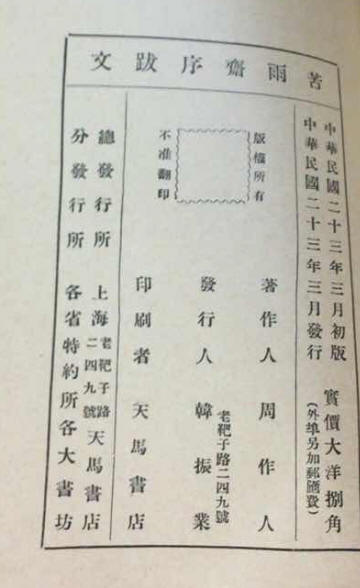 苦雨齋序跋文
中華民國二十三年三月初版
中華民國二十三年三月發行
實價大洋捌角
(外埠另加郵匯費)
版權所有
不准翻印
著作人 周作人
發行人 韓振業
老靶子路二四九號
印刷者 天馬書店
總發行所 上海老靶子路二四九號 天馬書店
分發行所 各省特約所各大書坊